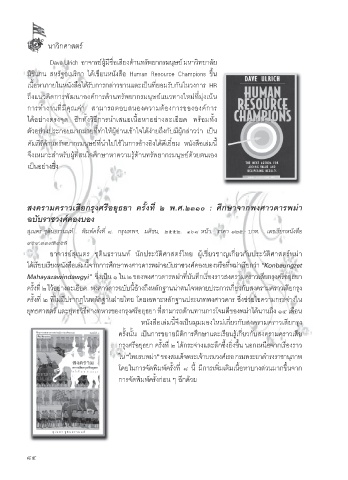 นาวิกศาสตร์
Dave Ulrich อาจารย์ผู้มีชื่อเสียงด้านทรัพยากรมนุษย์ มหาวิทยาลัย
มิชิแกน สหรัฐอเมริกา ได้เขียนหนังสือ Human Resource Champions ขึ้น
เนื้อหาภายในหนังสือได้รับการกล่าวขานและเป็นที่ยอมรับกันในวงการ HR
ถึงแนวคิดการพัฒนาองค์การด้านทรัพยากรมนุษย์แนวทางใหม่ที่มุ่งเน้น
การทำงานที่มีคุณค่า สามารถตอบสนองความต้องการขององค์การ
ได้อย่างตรงจุด อีกทั้งวิธีการนำเสนอเนื้อหาอย่างละเอียด พร้อมทั้ง
ตัวอย่างประกอบมากมายที่ทำให้ผู้อ่านเข้าใจได้ง่ายถึงกับมีผู้กล่าวว่า เป็น
คัมภีร์ด้านทรัพยากรมนุษย์ที่นำไปใช้ในการอ้างอิงได้ดีเยี่ยม หนังสือเล่มนี้
จึงเหมาะสำหรับผู้ที่สนใจศึกษาหาความรู้ด้านทรัพยากรมนุษย์ด้วยตนเอง
เป็นอย่างยิ่ง
DAVE ULRICH
HUMAN
RESOURCE
CHAMPIONS
THE NEXT AGENDA FOR
ADDING VALUE AND
DELIVERING RESULTS
สงครามคราวเสียกรุงศรีอยุธยา ครั้งที่ ๒ พ.ศ.๒๓๑๐ : ศึกษาจากพงศาวดารพม่า
ฉบับราชวงศ์คองบอง
สุเนตร ชุตินธรานนท์ พิมพ์ครั้งที่ ๘ กรุงเทพฯ
อาจารย์สุเนตร ชุตินธรานนท์ นักประวัติศาสตร์ไทย ผู้เชี่ยวชาญเกี่ยวกับประวัติศาสตร์พม่า
ได้เรียบเรียงหนังสือเล่มนี้จากการศึกษาพงศาวดารพม่าฉบับราชวงศ์คองบองหรือที่พม่าเรียกว่า "Konbaungzet
Mahayazawindawgyi" ซึ่งเป็น ๑ ใน ๒ ของพงศาวดารพม่าที่บันทึกเรื่องราวสงครามคราวเสียกรุงศรีอยุธยา
ครั้งที่ ๒ ไว้อย่างละเอียด พงศาวดารฉบับนี้อ้างถึงหลักฐานน่าสนใจหลายประการเกี่ยวกับสงครามคราวเสียกรุง
ครั้งที่ ๒ ที่ไม่ปรากฏในหลักฐานฝ่ายไทย โดยเฉพาะหลักฐานประเภทพงศาวดาร ซึ่งช่วยไขความกระจ่างใน
ยุทธศาสตร์ และยุทธวิธีทางทหารของกรุงศรีอยุธยา ที่สามารถต้านทานการโจมตีของพม่าได้นานถึง ๑๔ เดือน
หนังสือเล่มนี้จึงเป็นมุมมองใหม่เกี่ยวกับสงครามคราวเสียกรุง
ครั้งนั้น เป็นการขยายมิติการศึกษาและเรียนรู้เกี่ยวกับสงครามคราวเสีย
กรุงศรีอยุธยา ครั้งที่ ๒ ได้กระจ่างและลึกซึ้งยิ่งขึ้น นอกเหนือจากเรื่องราว
ใน "ไทยรบพม่า" ของสมเด็จพระเจ้าบรมวงศ์เธอ กรมพระยาดำรงราชานุภาพ
โดยในการจัดพิมพ์ครั้งที่ ๘ นี้ มีการเพิ่มเติมเนื้อหาบางส่วนมากขึ้นจาก
การจัดพิมพ์ครั้งก่อน ๆ อีกด้วย
สงคราม
สุเนตร ชุตินธรานนท์